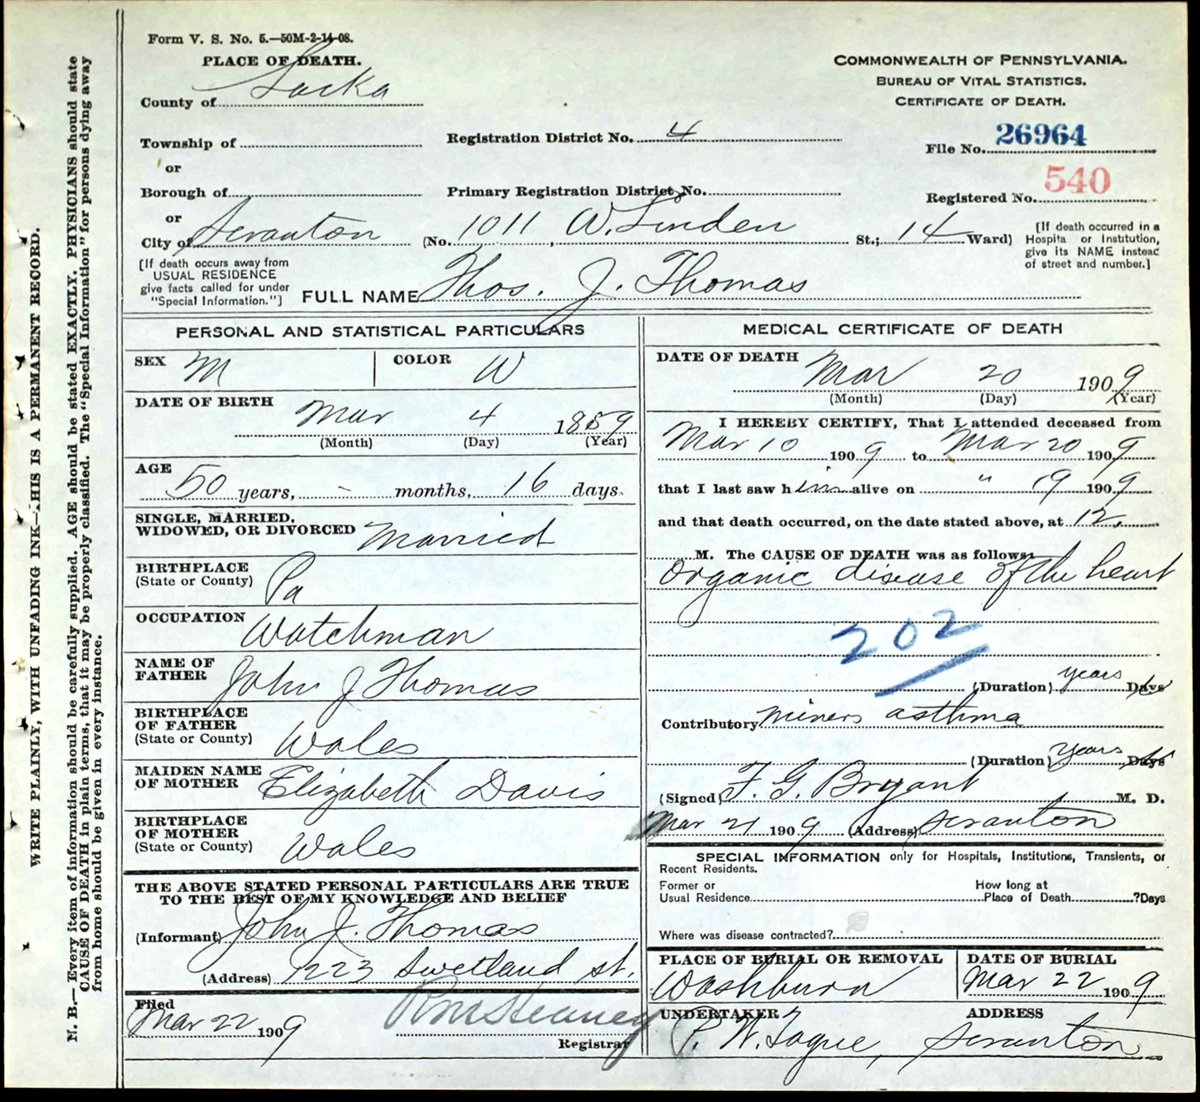 Form V. S. No. 5.—50M-2-14-08.
PLACE OF DEATH.
County of Lacka
Township of
or
Borough of
or
City of Scranton
[If death occurs away from
USUAL RESIDENCE
give facts called for under
"Special Information."]
Registration District No. 4
Primary Registration District No.
(No. 1011 W. Linden St.; 14 Ward)
COMMONWEALTH OF PENNSYLVANIA.
BUREAU OF VITAL STATISTICS.
CERTIFICATE OF DEATH.
File No. 26964
Registered No. 540
[If death occurred in a
Hospital or Institution,
give its NAME instead
of street and number.]
FULL NAME Thos. J. Thomas
WRITE PLAINLY, WITH UNFADING INK—HIS IS A PERMANENT RECORD.
N. B.—Every item of information should be carefully supplied. AGE should be stated EXACTLY. PHYSICIANS should state
CAUSE OF DEATH in plain terms, that it may be properly classified. The "Special Information" for persons dying away
from home should be given in every instance.
PERSONAL AND STATISTICAL PARTICULARS
SEX M
COLOR W
DATE OF BIRTH
Mar 4 1859
(Month) (Day) (Year)
AGE
50 years, - months, 16 days.
SINGLE, MARRIED,
WIDOWED, OR DIVORCED Married
BIRTHPLACE
(State or County) Pa
OCCUPATION
Watchman
NAME OF
FATHER John J Thomas
BIRTHPLACE
OF FATHER
(State or County) Wales
MAIDEN NAME
OF MOTHER Elizabeth Davis
BIRTHPLACE
OF MOTHER
(State or County) Wales
THE ABOVE STATED PERSONAL PARTICULARS ARE TRUE
TO THE BEST OF MY KNOWLEDGE AND BELIEF
(Informant) John J. Thomas
(Address) 1223 Swetland st.
Filed
Mar 22 1909
Registrar
MEDICAL CERTIFICATE OF DEATH
DATE OF DEATH
Mar 20 1909
(Month) (Day) (Year)
I HEREBY CERTIFY, That I attended deceased from
Mar 10 1909 to Mar 20 1909
that I last saw him alive on " 19 1909
and that death occurred, on the date stated above, at 12.
M. The CAUSE OF DEATH was as follows:
Organic disease of the heart
202
(Duration) years Days
Contributory miners asthma
(Duration) years Days
(Signed) F. G. Bryant M. D.
Mar 21 1909 (Address) Scranton
SPECIAL INFORMATION only for Hospitals, Institutions, Transients, or
Recent Residents.
Former or
Usual Residence
How long at
Place of Death ?Days
Where was disease contracted?
PLACE OF BURIAL OR REMOVAL
Washburn
DATE OF BURIAL
Mar 22 1909
UNDERTAKER
P. W. Tague,
ADDRESS
Scranton